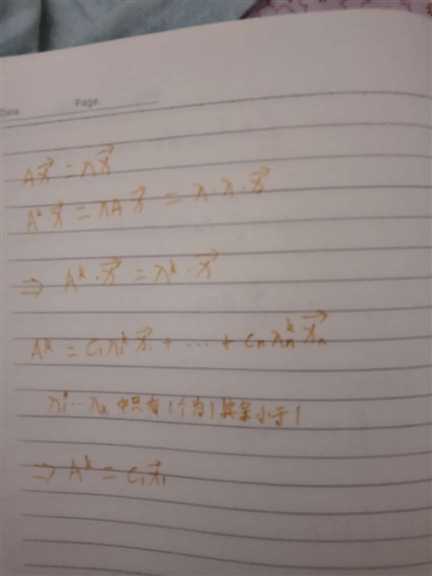 Date Page
A\vec{x} = λ\vec{x}
A²\vec{x} = λA\vec{x} = λ·λ·\vec{x}
⇒ A^k·\vec{x} = λ^k·\vec{x}
A^k = C₁λ₁^k\vec{x}₁ + ⋯ + Cₙλₙ^k\vec{x}ₙ
λ₁⋯λₙ 中只有1个为1 其余小于1
⇒ A^k = C₁\vec{x}₁